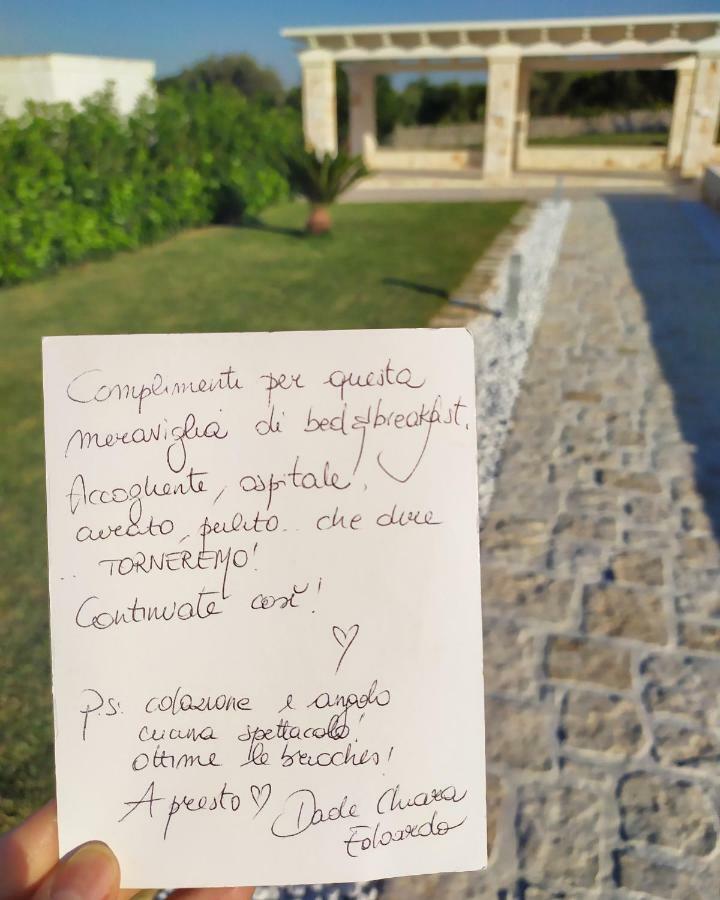 Complimenti per questa
meraviglia di bed&breakfast.
Accogliente, ospitale,
curato, pulito... che dire
.. TORNEREMO!
Continuate così!
♡
P.S: colazione e angolo
cucina spettacolo!
ottime le brioches!
A presto ♡ Dade Chiara
Edoardo